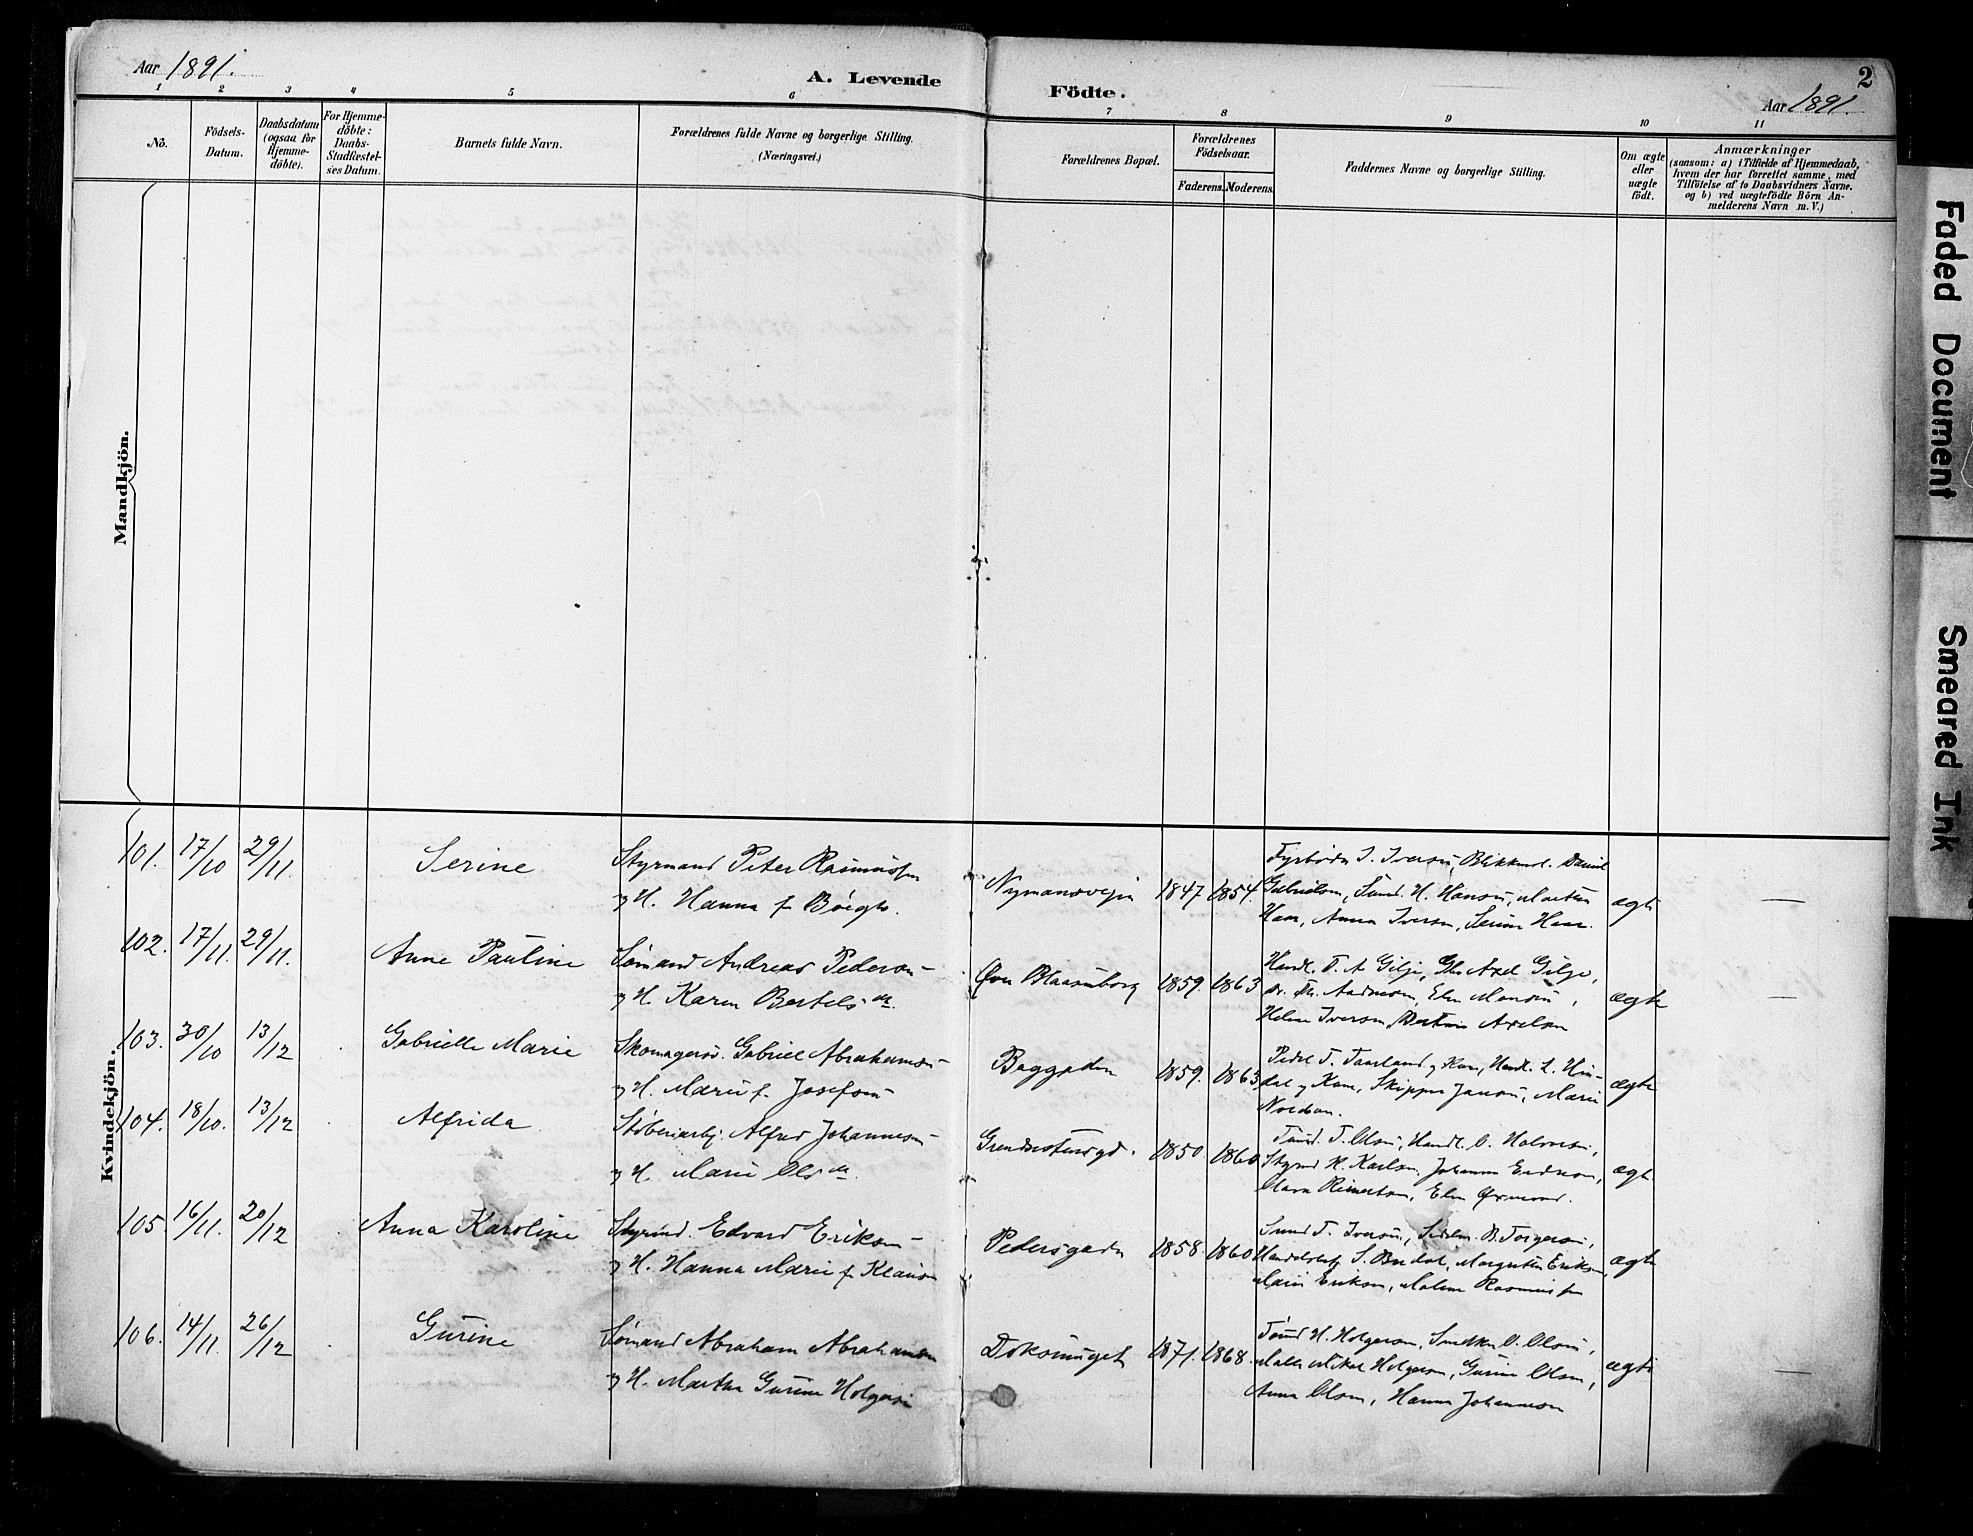 Aar 1891.
A. Levende
Födte.
2
Aar 1891.
1 2 3 4 5 6 7 8 9 10 11
No.
Födsels-
Datum.
Daabsdatum
(ogsaa for
Hjemme-
döbte).
For Hjemme-
döbte:
Daabs-
Stadfæstel-
ses Datum.
Barnets fulde Navn.
Forældrenes fulde Navne og borgerlige Stilling.
(Næringsvei.)
Forældrenes Bopæl.
Forældrenes
Födselsaar.
Faderens. Moderens.
Faddernes Navne og borgerlige Stilling.
Om ægte
eller
uægte
födt.
Anmærkninger
(saasom: a) i Tilfælde af Hjemmedaab,
hvem der har forrettet samme, med
Tilföielse af to Daabsvidners Navne.
og b) ved uægtefödte Börn An-
melderens Navn m. V.)
Mandkjön.
Kvindekjön.
101. 17/10 29/11. Serine
Styrmand Peter Rasmussen
og H. Hanna f.
Nymansveien 1847 1854.
J. Iversen, Daniel
Gabrielsen, H. Hansen, Martin
Haar, Anna Iversen, Serine Haar.
ægte
—
102. 17/11. 29/11. Anne Pauline
Sømand Andreas Pedersen
og H. Karen Bertelsda.
Øvre Blaasenborg 1859. 1863
Handl. T. A. Gilje, Axel Gilje,
Helene Iversen, Axelsen
ægte
—
103. 30/10 13/12 Gabrielle Marie
Skomagersv. Gabriel Abrahamsen
og H. Marie f. Josefsen
Baggaden 1859. 1863
Peder T. Taarland og Kone, Handl. L. Hin-
dal og Kone, Skipper Jansen, Marie
ægte
104. 18/10. 13/12 Alfrida
Støberiarb. Alfred Johannesen
og H. Marie Olsda.
1850. 1860
T. Olsen, Handl. O. Halvorsen,
Styrmd K. Karlsen, Johanna
ægte
105. 16/11. 20/12 Anna Karoline
Styrmd. Edvard Eriksen
og H. Hanna Marie f. Klausen
Pedersgaden 1858. 1860
T. Iversen, B. Torgersen,
S. Margrethe Eriksen,
Marie Eriksen, Malene Rasmussen
ægte
106. 14/11. 26/12 Gurine
Sømand Abraham Abrahamsen
og H. Martha Gurine Holgersen
Doksmuget 1871. 1868.
H. Holgersen, O. Olsen,
Holgersen, Gurine Olsen,
Anna Olsen, Hanna Johannesen
ægte
—
Faded Document
Smeared Ink